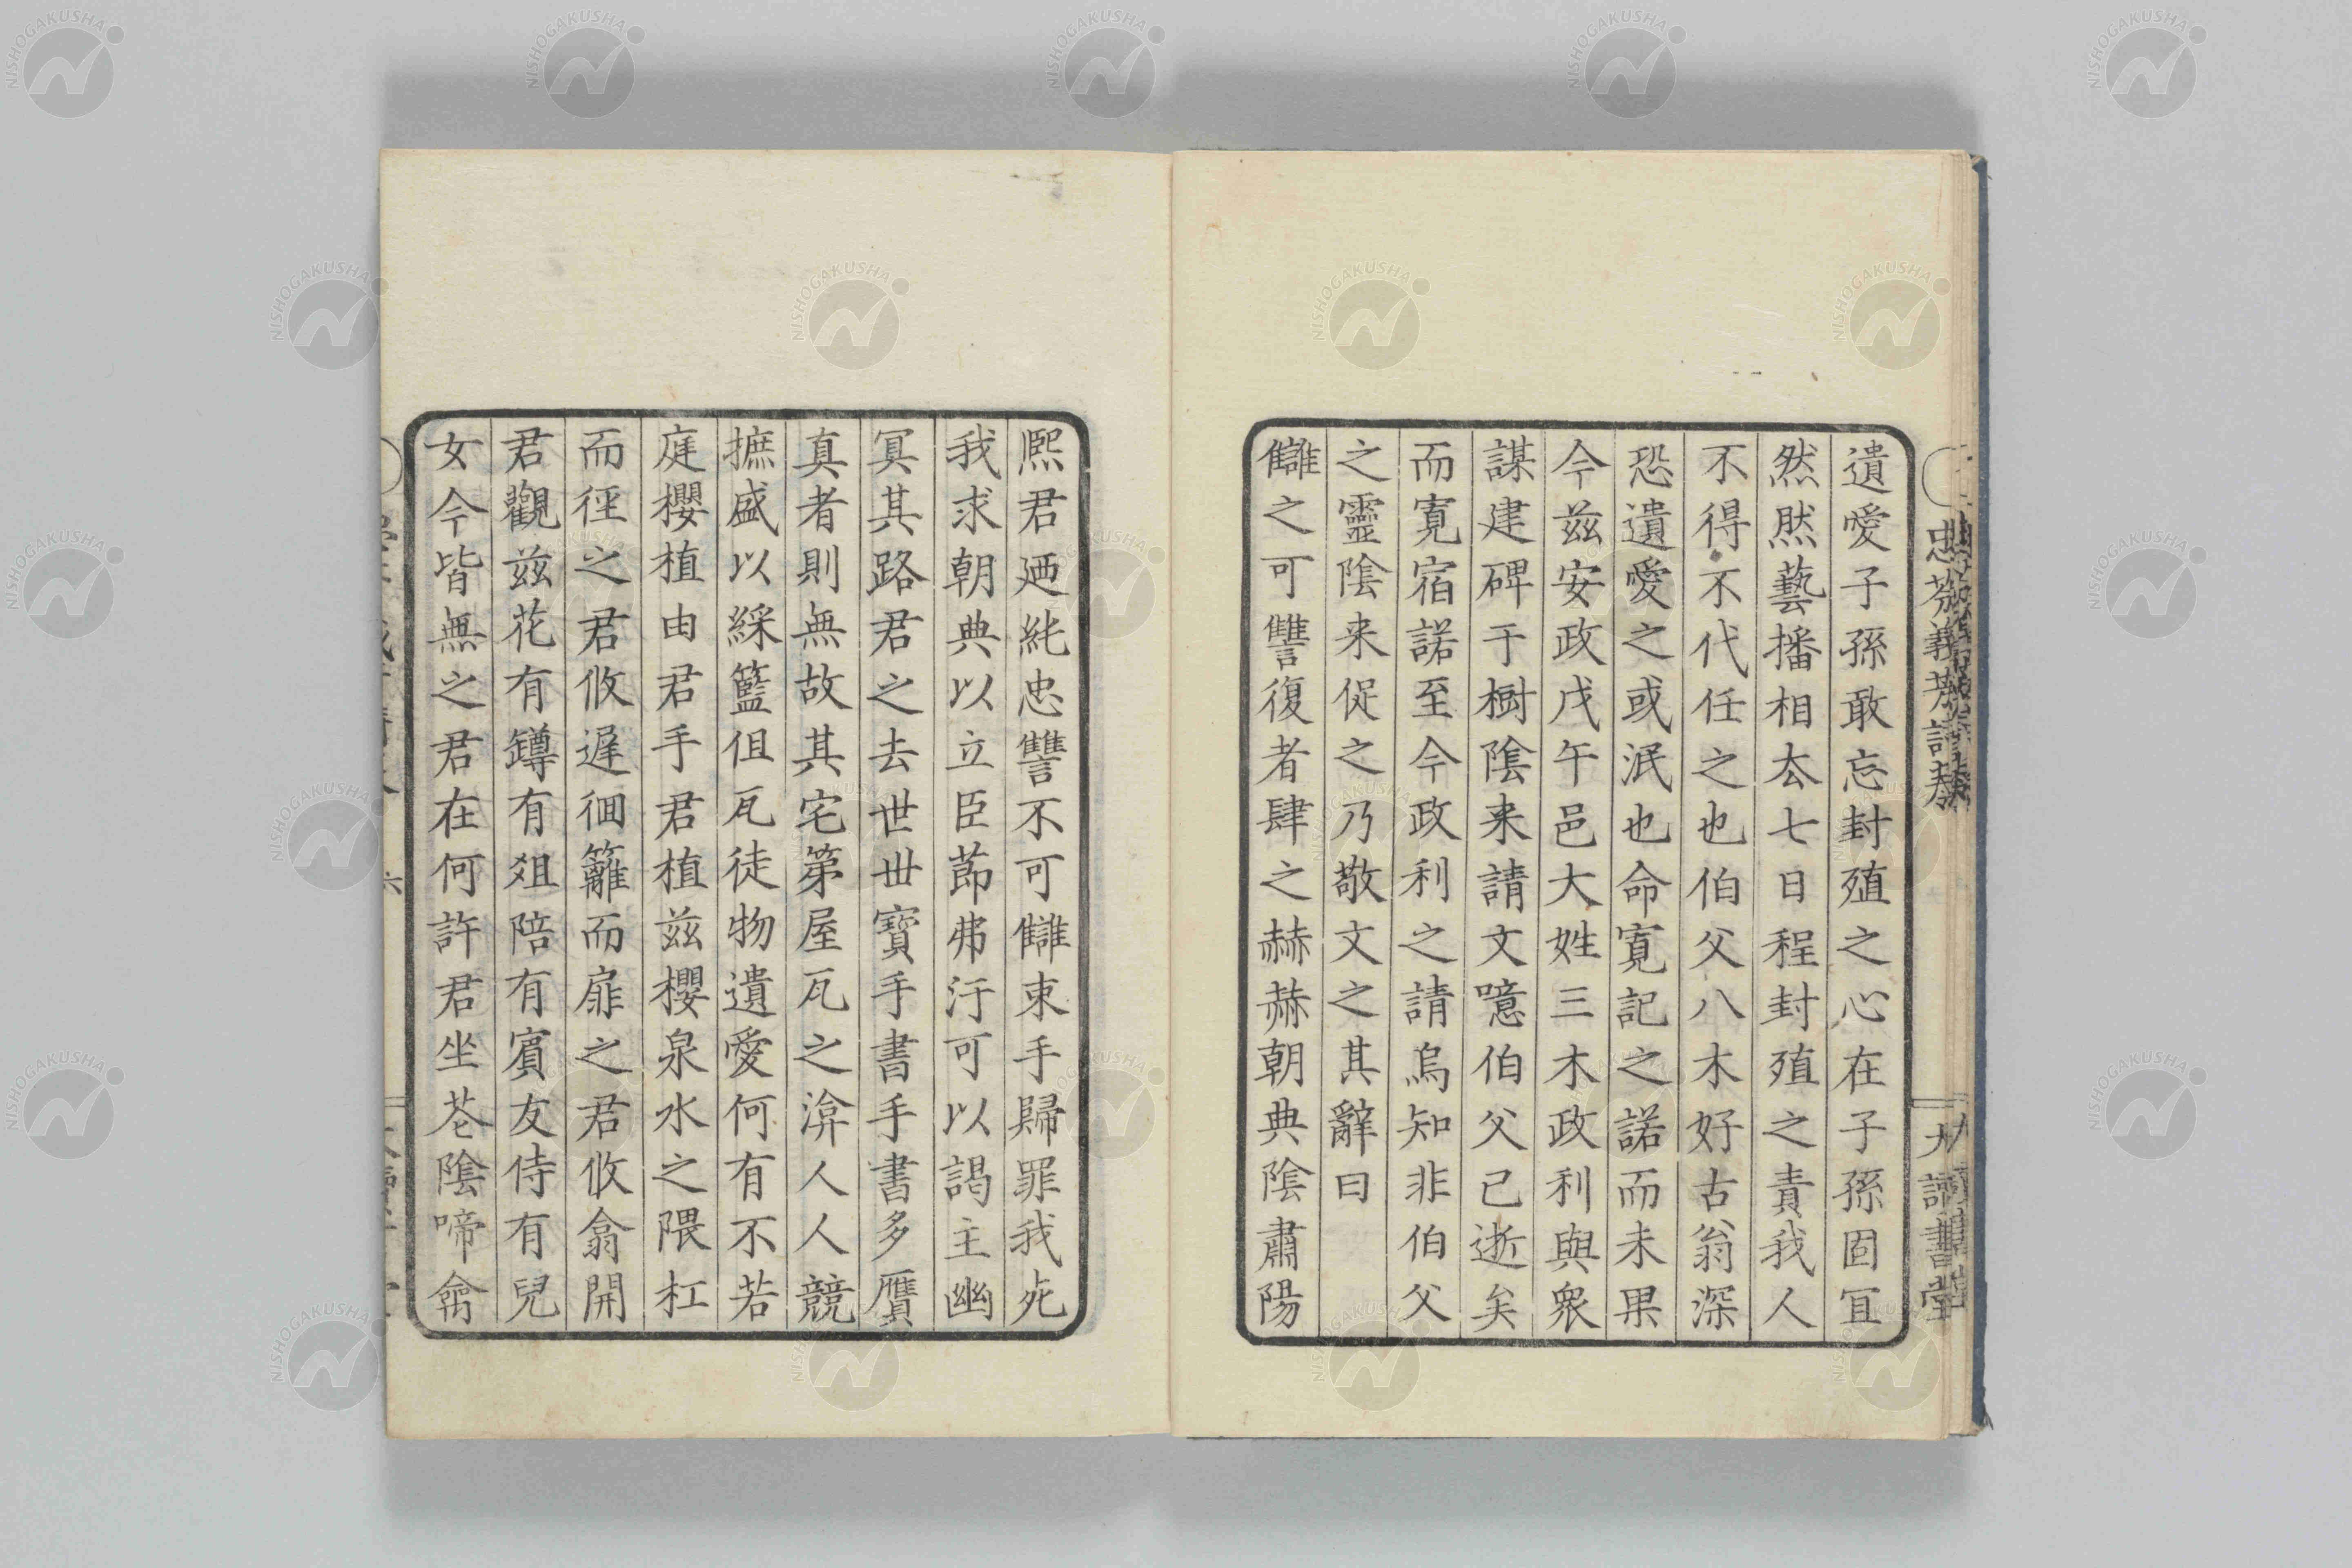 遺愛子孫敢忘封殖之心在子孫固冝
然然藝播相厺七日程封殖之責我人
不得不代任之也伯父八木好古翁深
恐遺愛之或泯也命寛記之諾而未果
今茲安政戊午邑大姓三木政利與衆
謀建碑于樹陰来請文噫伯父已逝矣
而寛宿諾至今政利之請烏知非伯父
之靈陰来促之乃敬文之其辭曰
讎之可讐復者肆之赫赫朝典陰肅陽
熙君廼純忠讐不可讎束手歸罪我死
我求朝典以立臣節弗汙可以謁主幽
冥其路君之去世世寳手書手書多贋
真者則無故其宅第屋瓦之渰人人競
摭盛以綵籃但瓦徒物遺愛何有不若
庭櫻植由君手君植茲櫻泉水之隈杠
而徑之君攸遅徊籬而扉之君攸翕開
君觀茲花有罇有爼陪有賓友侍有兒
女今皆無之君在何許君坐芲陰啼龠
六
NISHOGAKUSHA